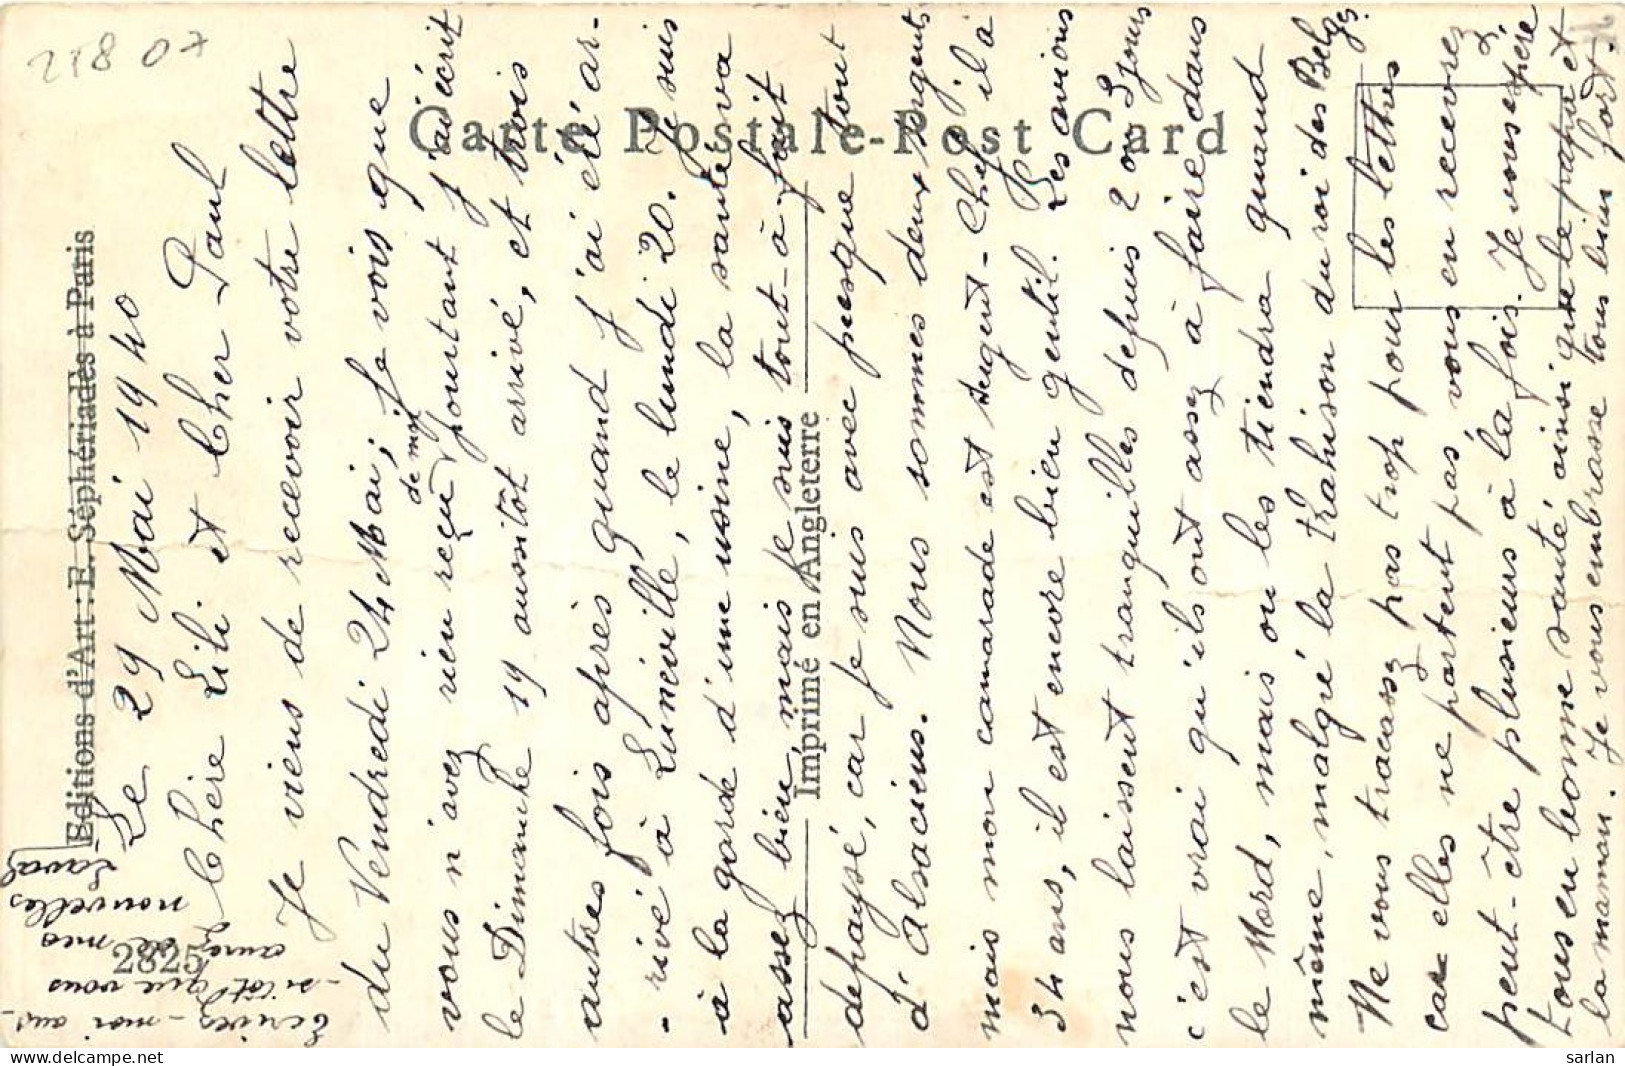 218 07
Carte Postale-Post Card
Editions d'Art : E. Séphériadès à Paris
Imprimé en Angleterre
2825
Le 29 Mai 1940
Chère Lili et Cher Paul
Je viens de recevoir votre lettre
du Vendredi 24 Mai, je vois que
vous n'avez rien reçu de moi pourtant j'ai écrit
le Dimanche 19 aussitôt arrivé, et trois
autres fois après quand j'ai été ar-
-rivé à Lunéville, le lundi 20. Je suis
à la garde d'une usine, la santé va
assez bien, mais je suis tout-à-fait
depaysé, car je suis avec presque tout
d'Alsaciens. Nous sommes deux sergents
mais mon camarade est sergent-Chef, il a
34 ans, il est encore bien gentil. Les avions
nous laissent tranquilles depuis 2 ou 3 jours
c'est vrai qu'ils ont assez à faire dans
le Nord, mais on les tiendra quand
même, malgré la trahison du roi des Belges.
Ne vous tracassez pas trop pour les lettres
car elles ne partent pas, vous en recevrez
peut-être plusieurs à la fois. Je vous espère
tous en bonne santé ainsi que le papa et
la maman. Je vous embrasse tous bien fort.
Ecrivez-moi aus-
-sitôt que vous
aurez de mes
nouvelles
sarlan